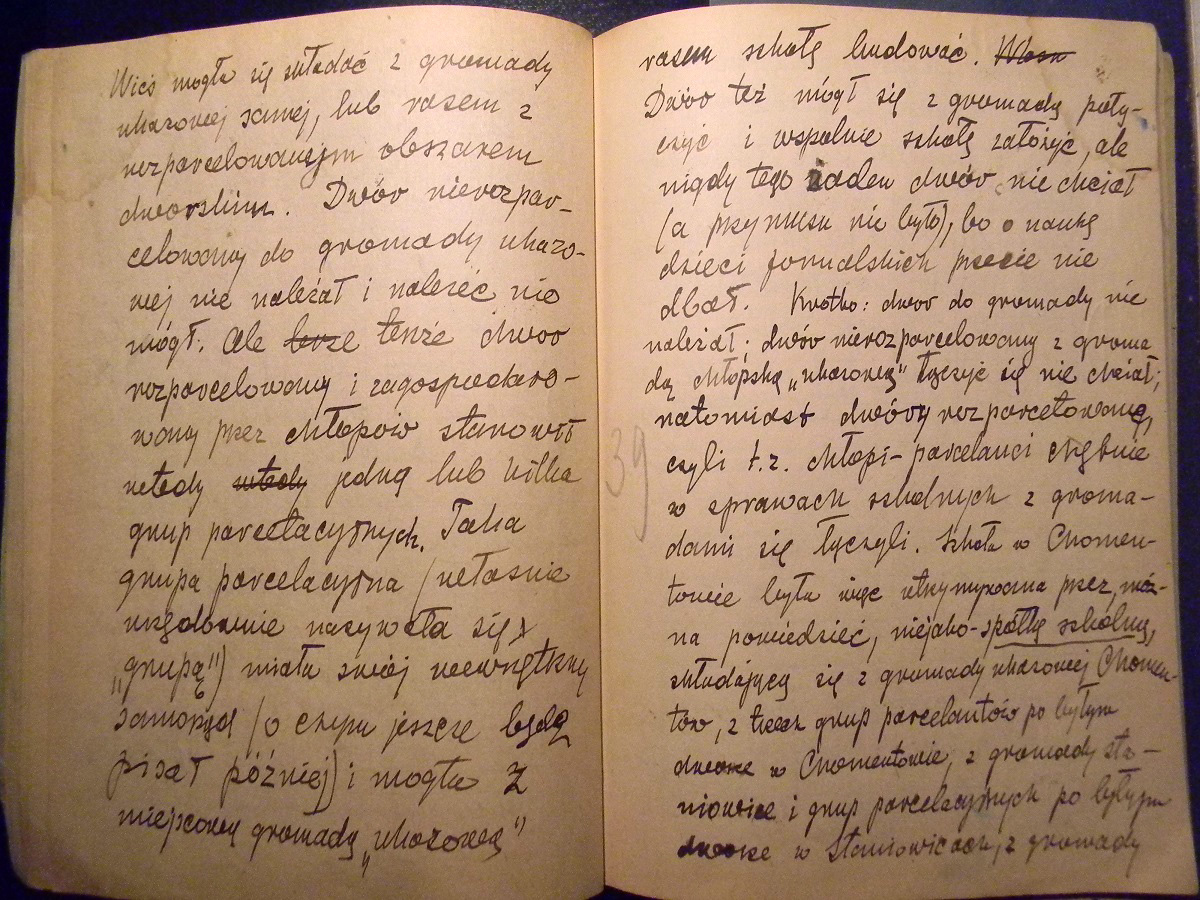 Wieś mogła się składać z gromady
ukazowej samej, lub rasem z
rozparcelowanym obszarem
dworskim. Dwór nierozpar-
celowany do gromady ukazo-
wej nie należał i należeć nie
mógł. Ale tenże dwór
rozparcelowany i zagospodaro-
wany przez chłopów stanowił
wtedy wtedy jedną lub kilka
grup parcelacyjnych. Taka
grupa parcelacyjna (właśnie
urzędownie nazywała się
„grupą") miała swój wewnętrzny
samorząd (o czym jeszcze będę
pisał później) i mogła z
miejscową gromadą „ukazową"
rasem szkołę budować.
Dwór też mógł się z gromadą połą-
czyć i wspólnie szkołę założyć, ale
nigdy tego żaden dwór nie chciał
(a przymusu nie było), bo o naukę
dzieci fornalskich przecie nie
dbał. Krótko: dwór do gromady nie
należał; dwór nierozparcelowany z groma
dą chłopską „ukazową" łączyć się nie chciał;
natomiast dwory rozparcelowane,
czyli t.z. chłopi-parcelanci chętnie
w sprawach szkolnych z groma-
dami się łączyli. Szkoła w Chomen-
towie była więc utrzymywana przez, moż-
na powiedzieć, niejako-spółkę szkolną,
składającą się z gromady ukazowej Chomen-
tów, z trzech grup parcelantów po byłym
dworze w Chomentowie, z gromady Sta-
niowice i grup parcelacyjnych po byłym
dworze w Staniowicach, z gromady
39